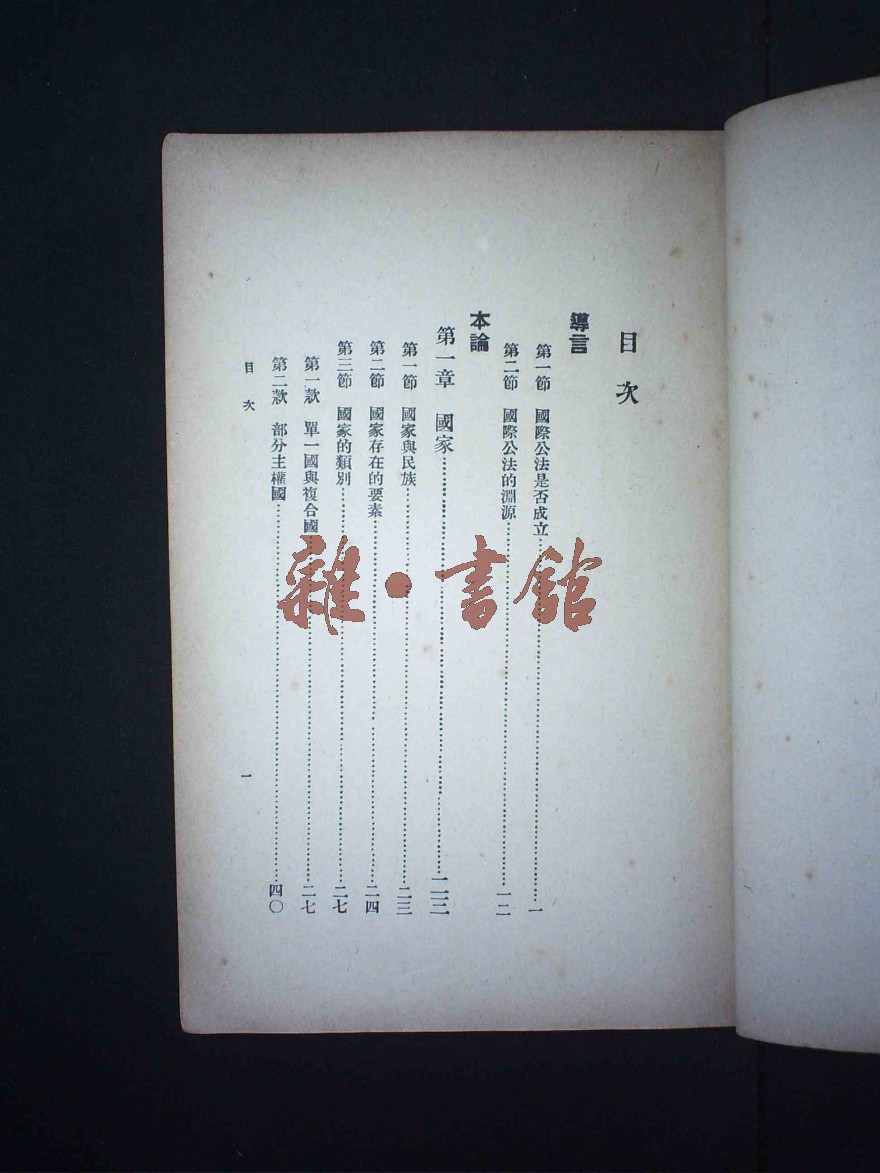 目次
導言
第一節 國際公法是否成立……一
第二節 國際公法的淵源……一二
本論
第一章 國家……二三
第一節 國家與民族……二三
第二節 國家存在的要素……二四
第三節 國家的類別……二七
第一款 單一國與複合國……二七
第二款 部分主權國……四〇
目次
一
雜·書館